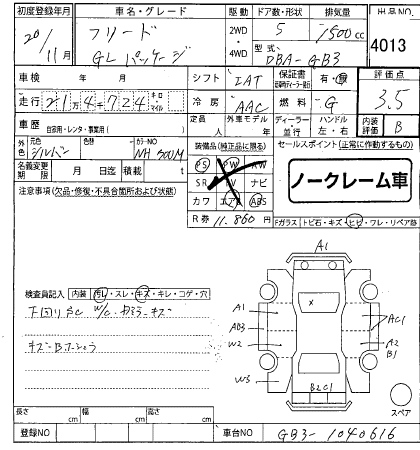 初度登録年月
車名・グレード
駆動
ドア数・形状
排気量
出品NO
20/11月
フリード
GLパッケージ
2WD
・
4WD
5
1500cc
型式
DBA-GB3
4013
車検 年 月
シフト
IAT
保証書
有・無
評価点
走行 21万4千724キロ
マイル
冷房
AAC
燃料
G
3.5
車歴
自家用・レンタ・事業用( )
定員
人
外車モデル
年
ディーラー
・
並行
ハンドル
左・右
内装
B
外色
シルバー
色替
カラーNO
NH 700M
装備品(純正品に限る)
セールスポイント(正常に作動するもの)
名義変更期限 月 日迄
積載 t
PS PW RW
SR TV ナビ
カワ エアB ABS
ノークレーム車
注意事項(欠品・修復・不具合箇所および状態)
R券 11,860円
Fガラス トビ石・キズ・ヒビ・ワレ・リペア跡
A1
検査員記入 内装 汚レ・スレ・キズ・キレ・コゲ・穴
下回りSC W/C
キズ・B
A1
A03
W2
W3
X
AC1
A2
B1
B2C1
スペア
長さ cm
幅 cm
高さ cm
登録NO
車台NO
GB3-1040616